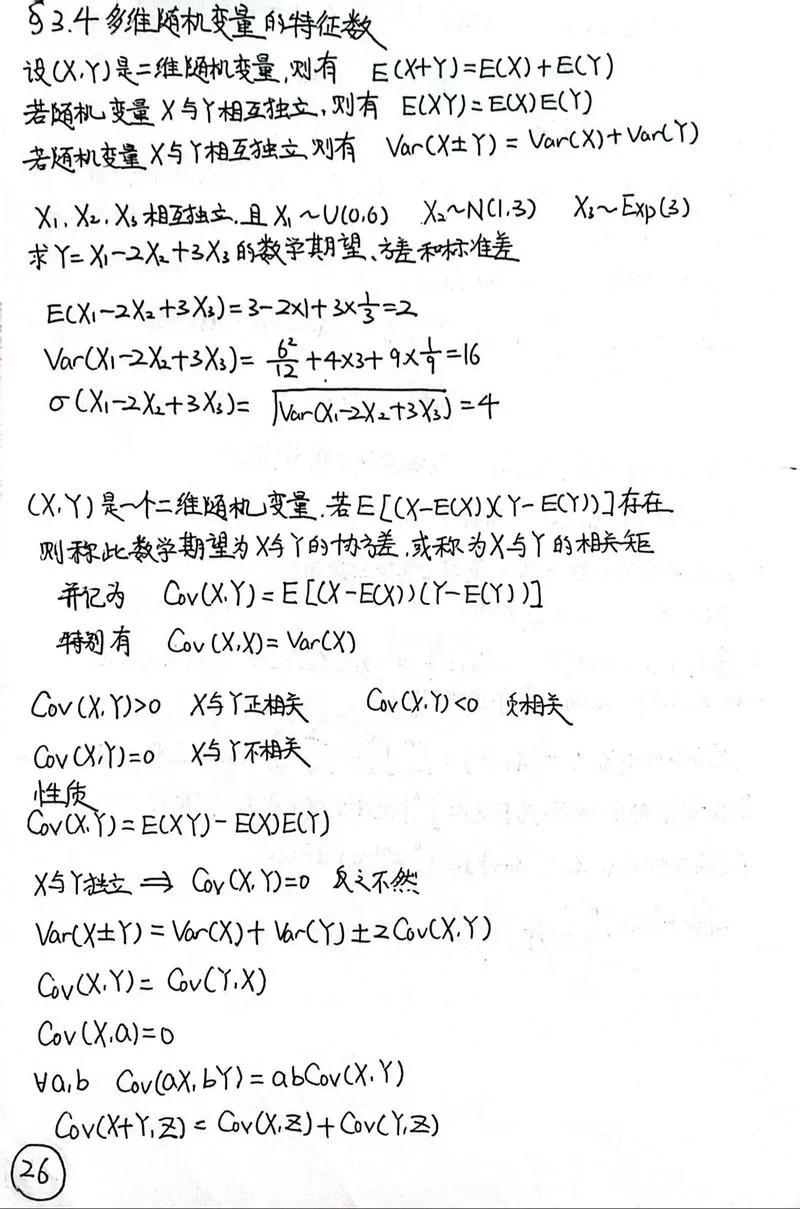 §3.4 多维随机变量的特征数
设(X,Y)是二维随机变量,则有 E(X+Y)=E(X)+E(Y)
若随机变量X与Y相互独立,则有 E(XY)=E(X)E(Y)
若随机变量X与Y相互独立 则有 Var(X±Y)=Var(X)+Var(Y)
X₁,X₂,X₃相互独立,且X₁~U(0,6) X₂~N(1,3) X₃~Exp(3)
求Y=X₁-2X₂+3X₃的数学期望、方差和标准差
E(X₁-2X₂+3X₃)=3-2×1+3×1/3=2
Var(X₁-2X₂+3X₃)=6²/12+4×3+9×1/9=16
σ(X₁-2X₂+3X₃)=√Var(X₁-2X₂+3X₃)=4
(X,Y)是一个二维随机变量,若E[(X-E(X))(Y-E(Y))]存在
则称此数学期望为X与Y的协方差,或称为X与Y的相关矩
并记为 Cov(X,Y)=E[(X-E(X))(Y-E(Y))]
特别有 Cov(X,X)=Var(X)
Cov(X,Y)>0 X与Y正相关 Cov(X,Y)<0 负相关
Cov(X,Y)=0 X与Y不相关
性质
Cov(X,Y)=E(XY)-E(X)E(Y)
X与Y独立⇒Cov(X,Y)=0 反之不然
Var(X±Y)=Var(X)+Var(Y)±2Cov(X,Y)
Cov(X,Y)=Cov(Y,X)
Cov(X,a)=0
∀a,b Cov(aX,bY)=abCov(X,Y)
Cov(X+Y,Z)=Cov(X,Z)+Cov(Y,Z)
26